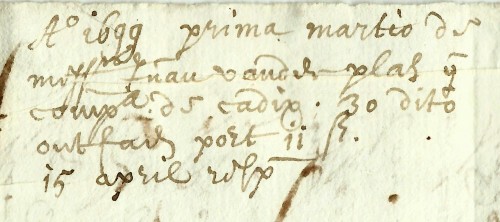 Aº 1699 prima martio de
mess.rs vander plas y
comp.a de cadix. 30 dito
ontfaen port 11 st.
15 april resp